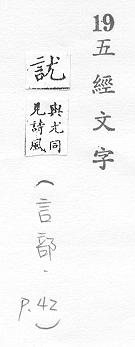 19 五經文字
訧
與尤同
見詩風
(言部.
P.42)